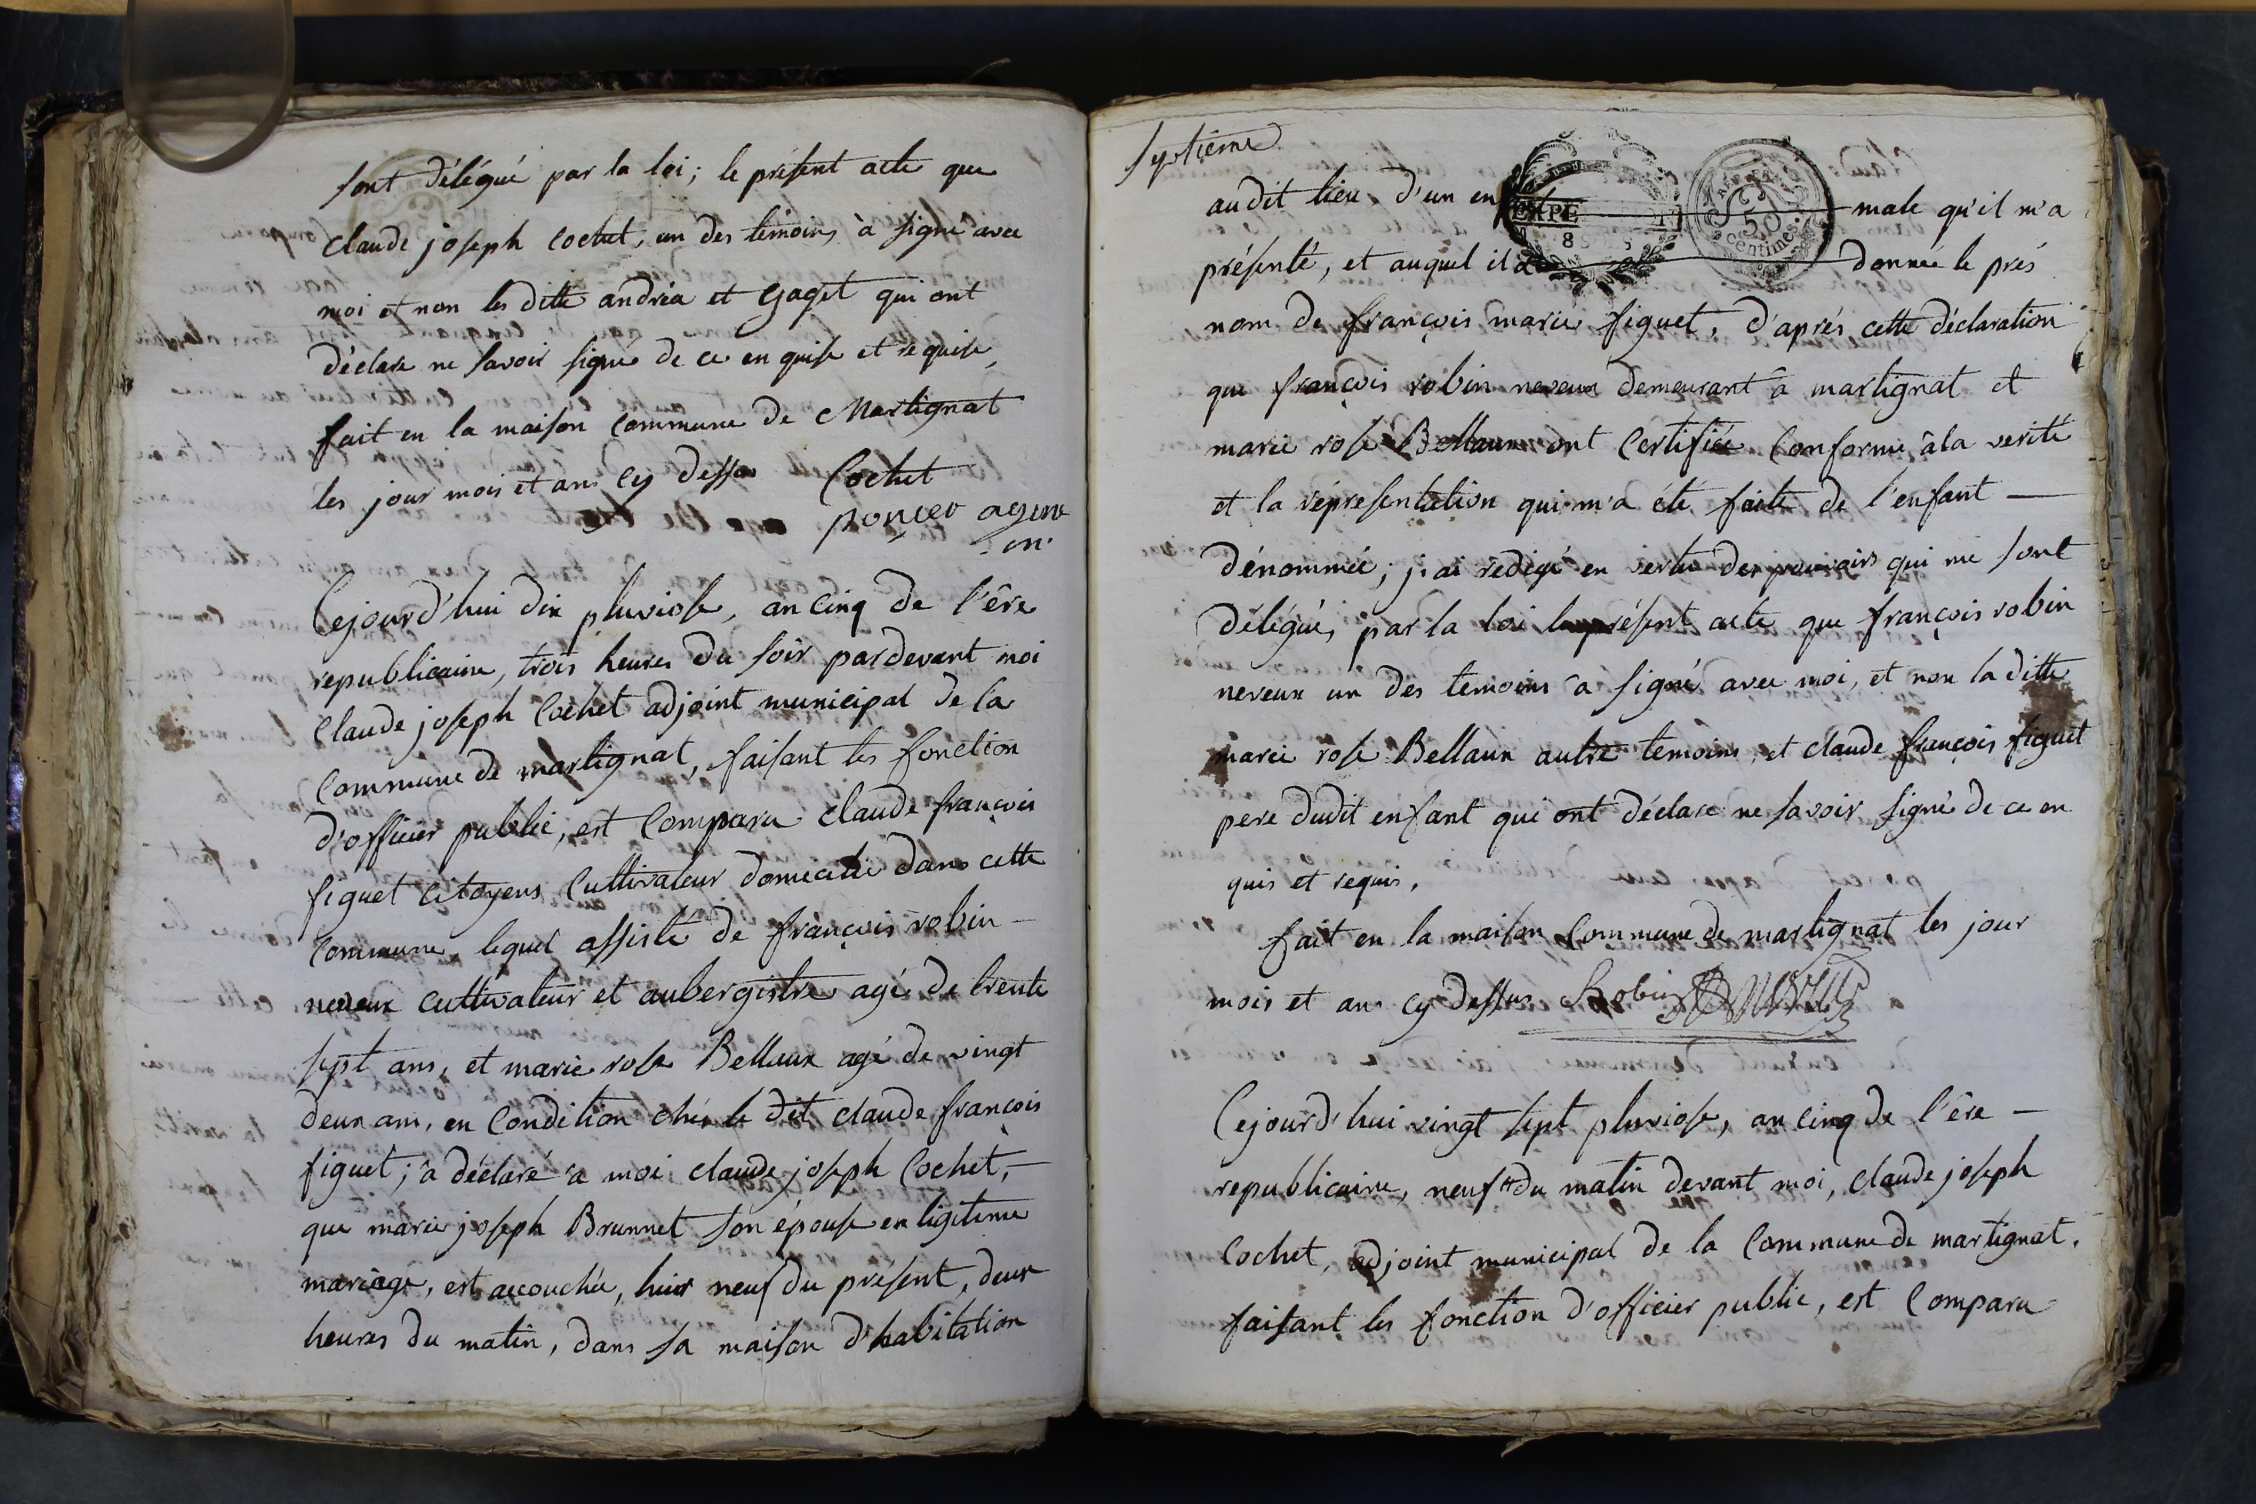 sont délégué par la loi; le présent acte que
claude joseph cochet, un des témoins à signé avec
moi et non les ditte andréa et gaget qui ont
déclare ne savoir signe de ce en quise et requise,
fait en la maison commune de Martignat
les jour mois et ans cy dessu Cochet
poncer agent
Cejourd'hui dix pluviose, an cinq de l'êre
republicaine, trois heures du soir pardevant moi
claude joseph cochet adjoint municipal de la
commune de martignat, faisant les fonction
d'officier public, est comparu claude françois
figuet citoyens cultivateur domicilié dans cette
commune, lequel assisté de françois robin —
neveux cultivateur et aubergistre agé de trente
sept ans, et marie rose Bellaux agé de vingt
deux ans, en condition chés le dit claude françois
figuet; â déclaré a moi claude joseph cochet, —
que marie joseph Brunnet son épouse en ligitime
mariage, est accouchée, hier neuf du présent, deux
heures du matin, dans sa maison d'habitation
septième
audit lieu d'un en male qu'il m'a
EXPE
8
50
centimes.
présenté, et auquel il a donnée le prés
nom de françois marie figuet, d'aprés cette déclaration
que françois robin neveux demeurant â martignat et
marie rose Bellaux ont certifiée conforme â la verité
et la répresentation qui m'a été faite de l'enfant —
dénommée; j. ai redigé en vertu des pouvoirs qui me sont
délégués par la loi le présent acte que françois robin
neveux un des temoins a signé avec moi, et non la ditte
marie rose Bellaux autre temoins, et claude françois figuet
pere dudit enfant qui ont déclaré ne savoir signé de ce en
quis et requis,
fait en la maison commune de martignat les jour
mois et an cy dessus Robin
Cejourd'hui vingt sept pluviose, an cinq de l'êre —
republicaine, neuf h du matin devant moi, claude joseph
cochet, adjoint municipal de la commune de martignat,
faisant les fonction d'officier public, est comparu